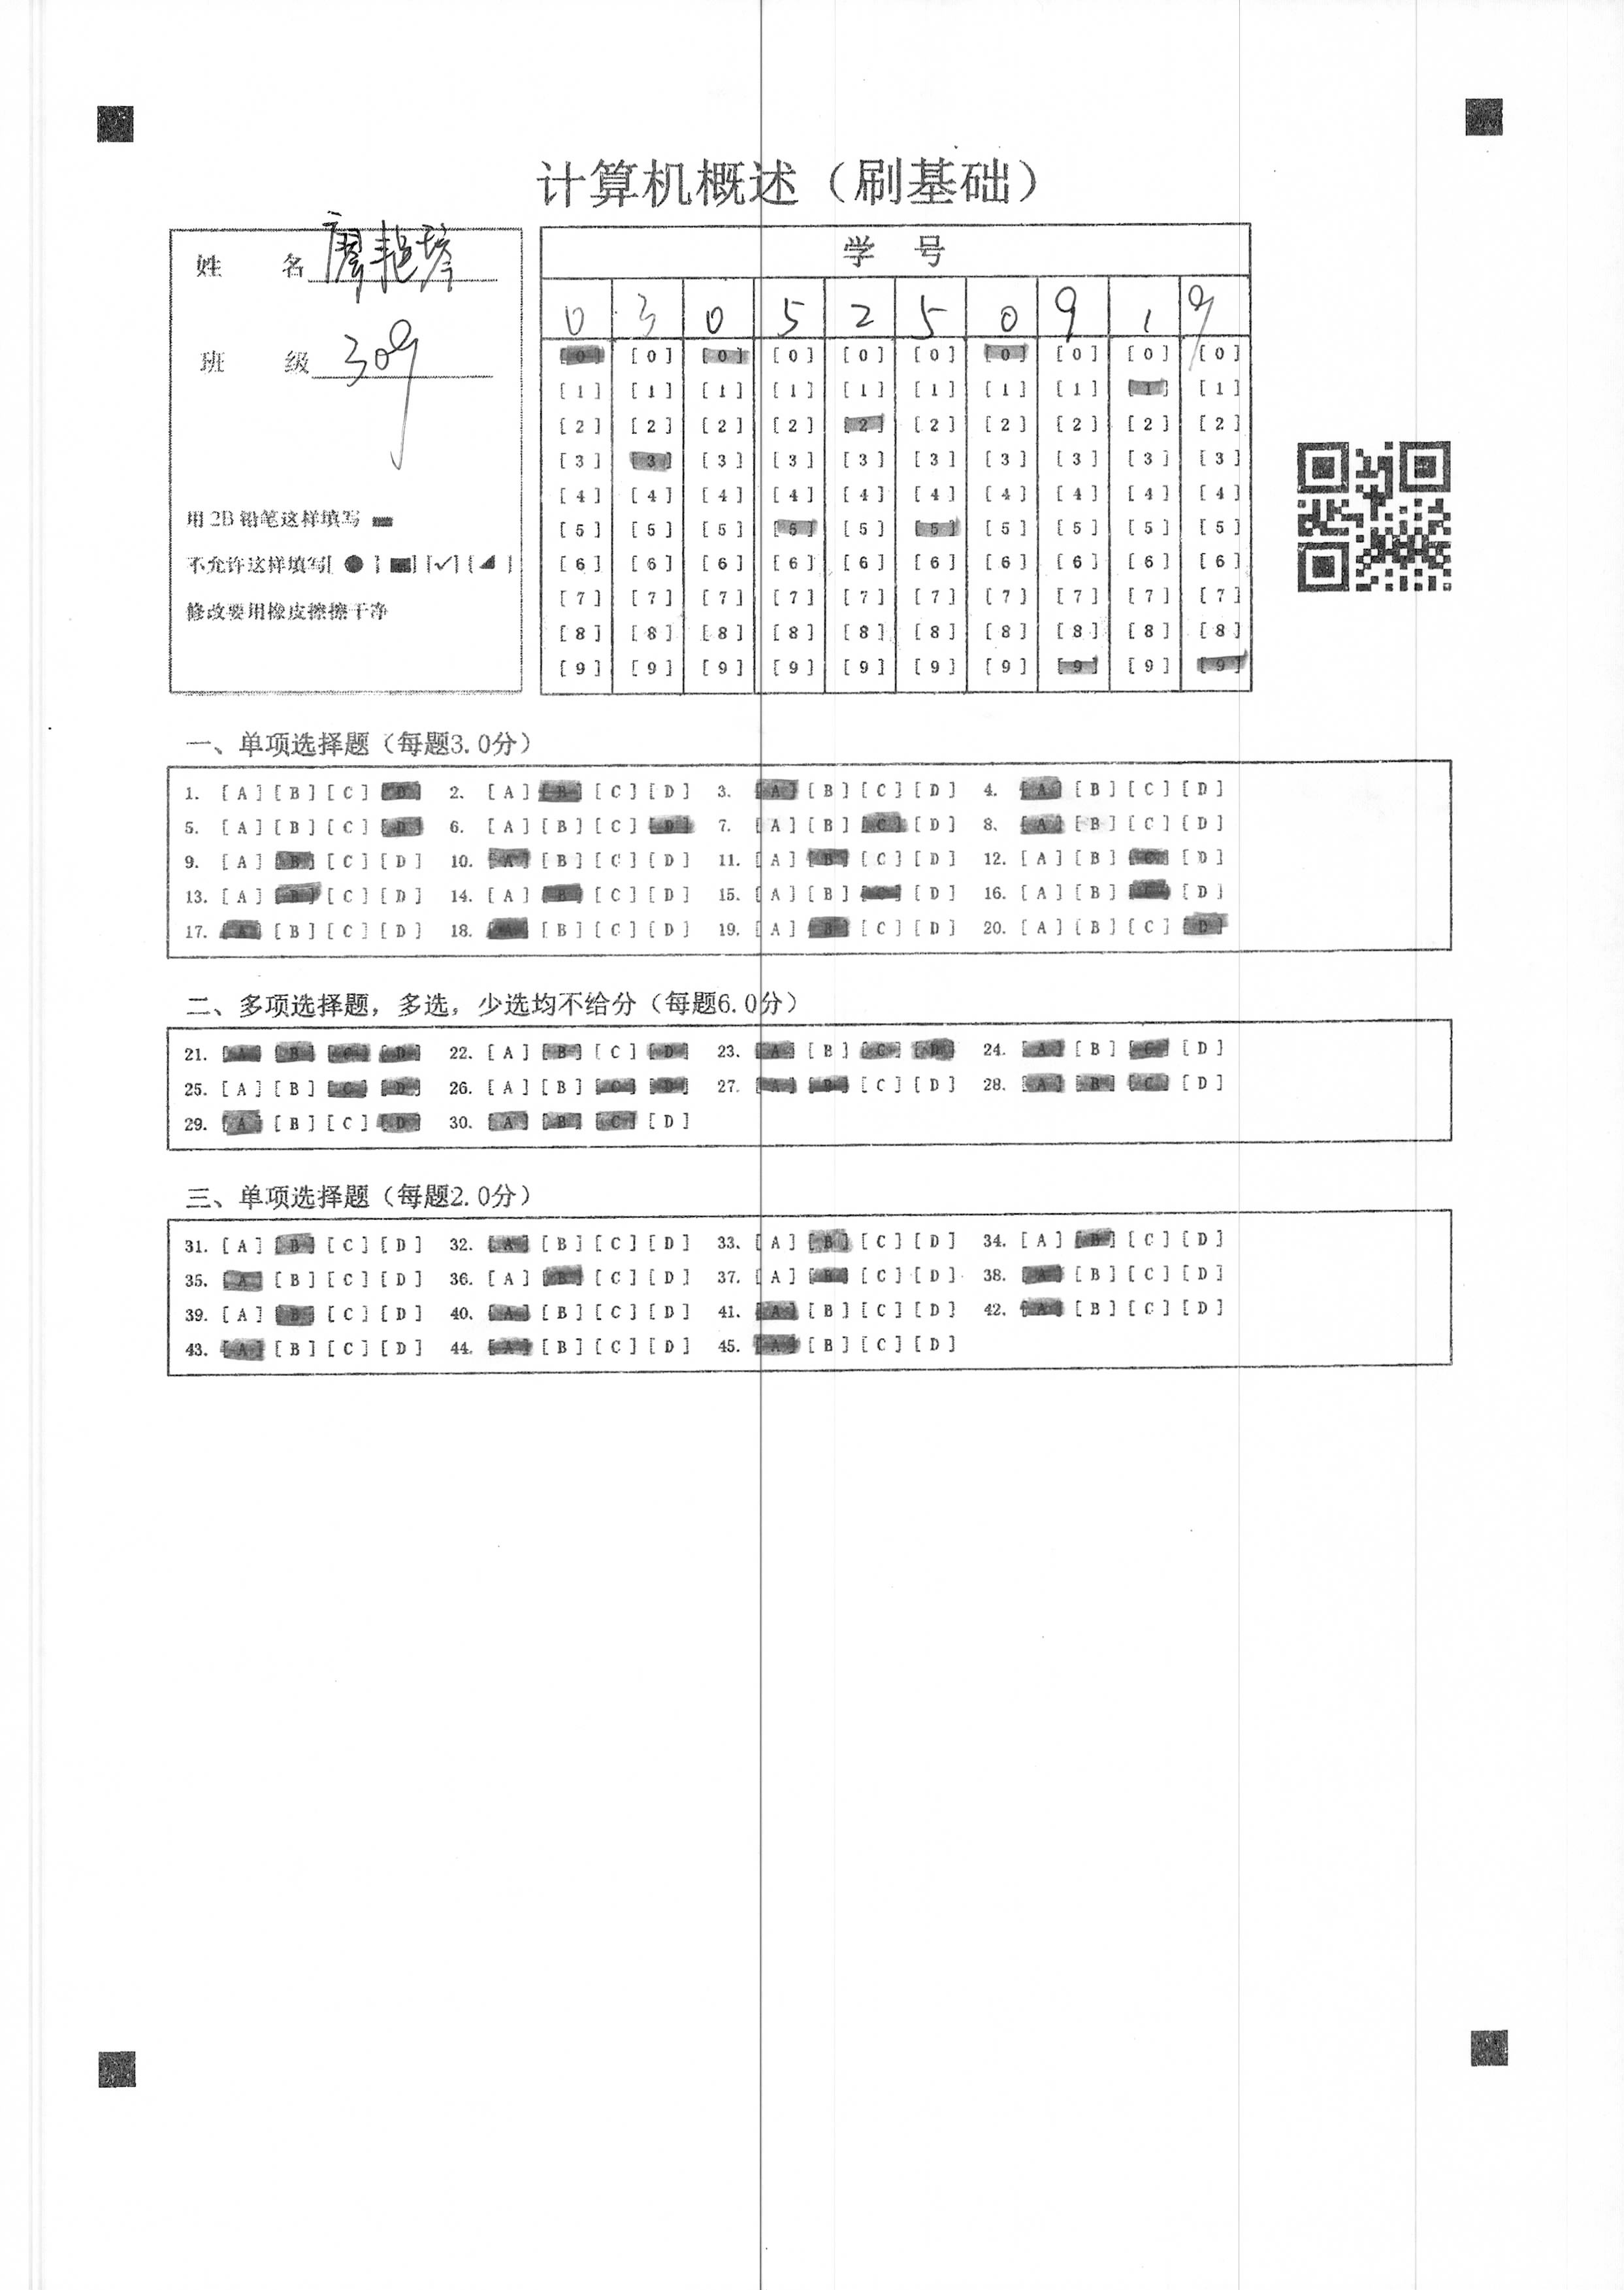 计算机概述（刷基础）
姓 名 廖艳琴
班 级 309
用 2B 铅笔这样填写
不允许这样填写[ ● ] [■] [✓] [◢ ]
修改要用橡皮擦擦干净
学 号
0 3 0 5 2 5 0 9 1 9
[0] [0] [0] [0] [0] [0] [0] [0] [0] [0]
[1] [1] [1] [1] [1] [1] [1] [1] [1] [1]
[2] [2] [2] [2] [2] [2] [2] [2] [2] [2]
[3] [3] [3] [3] [3] [3] [3] [3] [3] [3]
[4] [4] [4] [4] [4] [4] [4] [4] [4] [4]
[5] [5] [5] [5] [5] [5] [5] [5] [5] [5]
[6] [6] [6] [6] [6] [6] [6] [6] [6] [6]
[7] [7] [7] [7] [7] [7] [7] [7] [7] [7]
[8] [8] [8] [8] [8] [8] [8] [8] [8] [8]
[9] [9] [9] [9] [9] [9] [9] [9] [9] [9]
一、单项选择题（每题3.0分）
1. [A] [B] [C] [D] 2. [A] [B] [C] [D] 3. [A] [B] [C] [D] 4. [A] [B] [C] [D]
5. [A] [B] [C] [D] 6. [A] [B] [C] [D] 7. [A] [B] [C] [D] 8. [A] [B] [C] [D]
9. [A] [B] [C] [D] 10. [A] [B] [C] [D] 11. [A] [B] [C] [D] 12. [A] [B] [C] [D]
13. [A] [B] [C] [D] 14. [A] [B] [C] [D] 15. [A] [B] [C] [D] 16. [A] [B] [C] [D]
17. [A] [B] [C] [D] 18. [A] [B] [C] [D] 19. [A] [B] [C] [D] 20. [A] [B] [C] [D]
二、多项选择题，多选，少选均不给分（每题6.0分）
21. [A] [B] [C] [D] 22. [A] [B] [C] [D] 23. [A] [B] [C] [D] 24. [A] [B] [C] [D]
25. [A] [B] [C] [D] 26. [A] [B] [C] [D] 27. [A] [B] [C] [D] 28. [A] [B] [C] [D]
29. [A] [B] [C] [D] 30. [A] [B] [C] [D]
三、单项选择题（每题2.0分）
31. [A] [B] [C] [D] 32. [A] [B] [C] [D] 33. [A] [B] [C] [D] 34. [A] [B] [C] [D]
35. [A] [B] [C] [D] 36. [A] [B] [C] [D] 37. [A] [B] [C] [D] 38. [A] [B] [C] [D]
39. [A] [B] [C] [D] 40. [A] [B] [C] [D] 41. [A] [B] [C] [D] 42. [A] [B] [C] [D]
43. [A] [B] [C] [D] 44. [A] [B] [C] [D] 45. [A] [B] [C] [D]